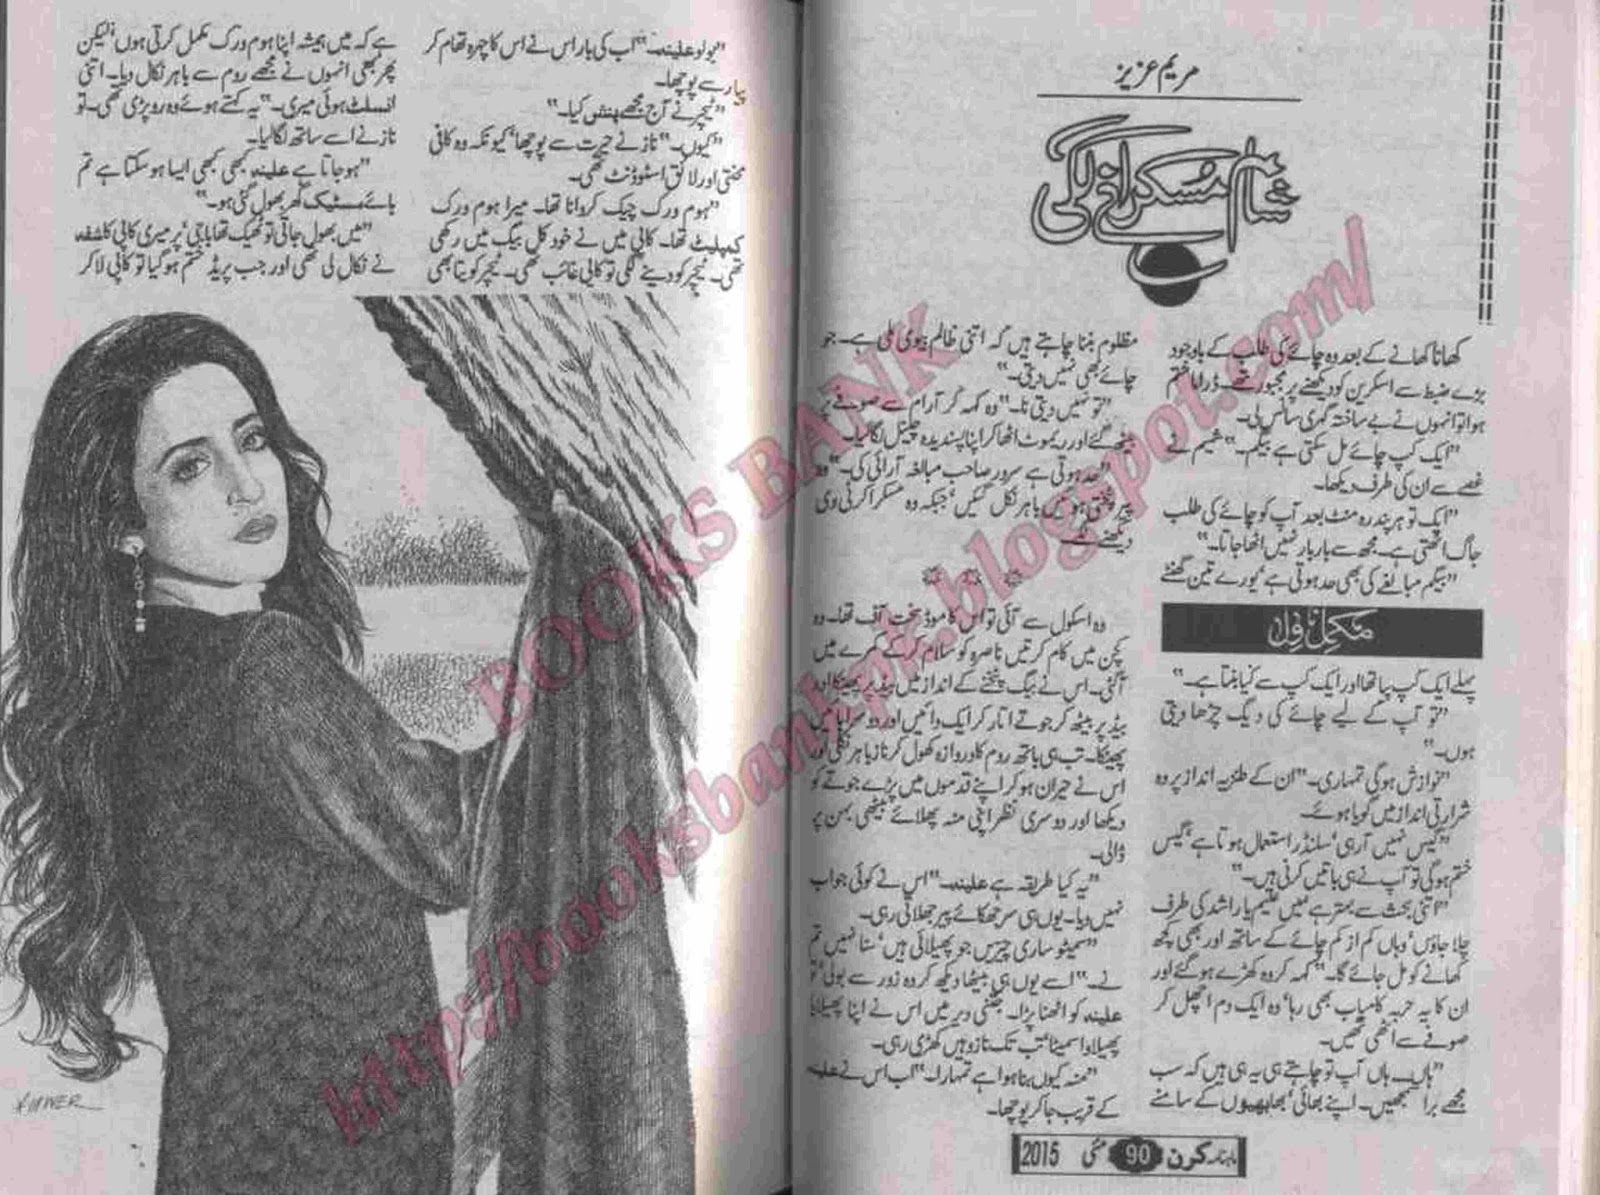 مریم عزیز
شام مسکرانے لگی
کھانا کھانے کے بعد وہ چائے کی طلب کے باوجود
بڑے ضبط سے اسکرین کو دیکھنے پر مجبور تھے۔ ڈراما ختم
ہوا تو انہوں نے بے ساختہ گہری سانس لی۔
"ایک کپ چائے مل سکتی ہے بیگم۔" شمیم نے
غصے سے ان کی طرف دیکھا۔
"ایک تو ہر پندرہ منٹ بعد آپ کو چائے کی طلب
جاگ اٹھتی ہے۔ مجھ سے بار بار نہیں اٹھا جاتا۔"
"بیگم مبالغے کی بھی حد ہوتی ہے، پورے تین گھنٹے
مکمل ناول
پہلے ایک کپ پیا تھا اور ایک کپ سے کیا بنتا ہے۔"
"تو آپ کے لیے چائے کی دیگ چڑھا دیتی
ہوں۔"
"نوازش ہوگی تمہاری۔" ان کے طنزیہ انداز پر وہ
شرارتی انداز میں گویا ہوئے۔
"گیس نہیں آرہی، سلنڈر استعمال ہوتا ہے، گیس
ختم ہوگی تو آپ نے ہی باتیں کرنی ہیں۔"
"اتنی بحث سے بہتر ہے میں علیم یا راشد کی طرف
چلا جاؤں، وہاں کم از کم چائے کے ساتھ اور بھی کچھ
کھانے کو مل جائے گا۔" کہہ کر وہ کھڑے ہو گئے اور
ان کا یہ حربہ کامیاب بھی رہا، وہ ایک دم اچھل کر
صوفے سے اٹھی تھیں۔
"ہاں۔ ہاں آپ تو چاہتے ہی یہ ہی ہیں کہ سب
مجھے برا سمجھیں۔ اپنے بھائی، بھابھیوں کے سامنے
مظلوم بننا چاہتے ہیں کہ اتنی ظالم بیوی ملی ہے۔ جو
چائے بھی نہیں دیتی۔"
"تو نہیں دیتی نا۔" وہ کہہ کر آرام سے صوفے پر
بیٹھ گئے اور ریموٹ اٹھا کر اپنا پسندیدہ چینل لگا لیا۔
"حد ہوتی ہے سرور صاحب مبالغہ آرائی کی۔" وہ
پیر پٹختی ہوئیں باہر نکل گئیں، جبکہ وہ مسکرا کر ٹی وی
دیکھنے لگے۔
وہ اسکول سے آئی تو اس کا موڈ سخت آف تھا۔ وہ
کچن میں کام کرتیں ناصرہ کو سلام کرکے کمرے میں
آگئی۔ اس نے بیگ پٹخنے کے انداز میں بیڈ پر پھینکا اور
بیڈ پر بیٹھ کر جوتے اتار کر ایک دائیں اور دوسرا بائیں
پھینکا۔ تب ہی باتھ روم کا دروازہ کھول کر ناز باہر نکلی اور
اس نے حیران ہو کر اپنے قدموں میں پڑے جوتے کو
دیکھا اور دوسری نظر اپنی منہ پھلائے بیٹھی بہن پر
ڈالی۔
"یہ کیا طریقہ ہے علینہ۔" اس نے کوئی جواب
نہیں دیا۔ یوں ہی سر جھکائے پیر جھلاتی رہی۔
"سمیٹو ساری چیزیں جو پھیلائی ہیں، سنا نہیں تم
نے۔" اسے یوں ہی بیٹھا دیکھ کر وہ زور سے بولی، تو
علینہ کو اٹھنا پڑا۔ جتنی دیر میں اس نے اپنا پھیلایا
پھیلاوا سمیٹا، تب تک ناز وہیں کھڑی رہی۔
"منہ کیوں بنا ہوا ہے تمہارا۔" اب اس نے علینہ
کے قریب جا کر پوچھا۔
ماہنامہ کرن 90 مئی 2015
"بولو علینہ۔" اب کی بار اس نے اس کا چہرہ تھام کر
پیار سے پوچھا۔
"ٹیچر نے آج مجھے پنش کیا۔"
"کیوں۔" ناز نے حیرت سے پوچھا، کیونکہ وہ کافی
محنتی اور لائق اسٹوڈنٹ تھی۔
"ہوم ورک چیک کروانا تھا۔ میرا ہوم ورک
کمپلیٹ تھا۔ کاپی میں نے خود کل بیگ میں رکھی
تھی۔ ٹیچر کو دینے لگی تو کاپی غائب تھی۔ ٹیچر کو پتا بھی
ہے کہ میں ہمیشہ اپنا ہوم ورک مکمل کرتی ہوں، لیکن
پھر بھی انہوں نے مجھے روم سے باہر نکال دیا۔ اتنی
انسلٹ ہوئی میری۔" یہ کہتے ہوئے وہ رو پڑی تھی۔ تو
ناز نے اسے ساتھ لگا لیا۔
"ہو جاتا ہے علینہ کبھی کبھی ایسا ہو سکتا ہے تم
بائے مسٹیک گھر بھول گئی ہو۔"
"میں بھول جاتی تو ٹھیک تھا باجی، پر میری کاپی کاشفہ
نے نکال لی تھی اور جب پریڈ ختم ہو گیا تو کاپی لا کر
BOOKS BANK
http://booksbankpk.blogspot.com/